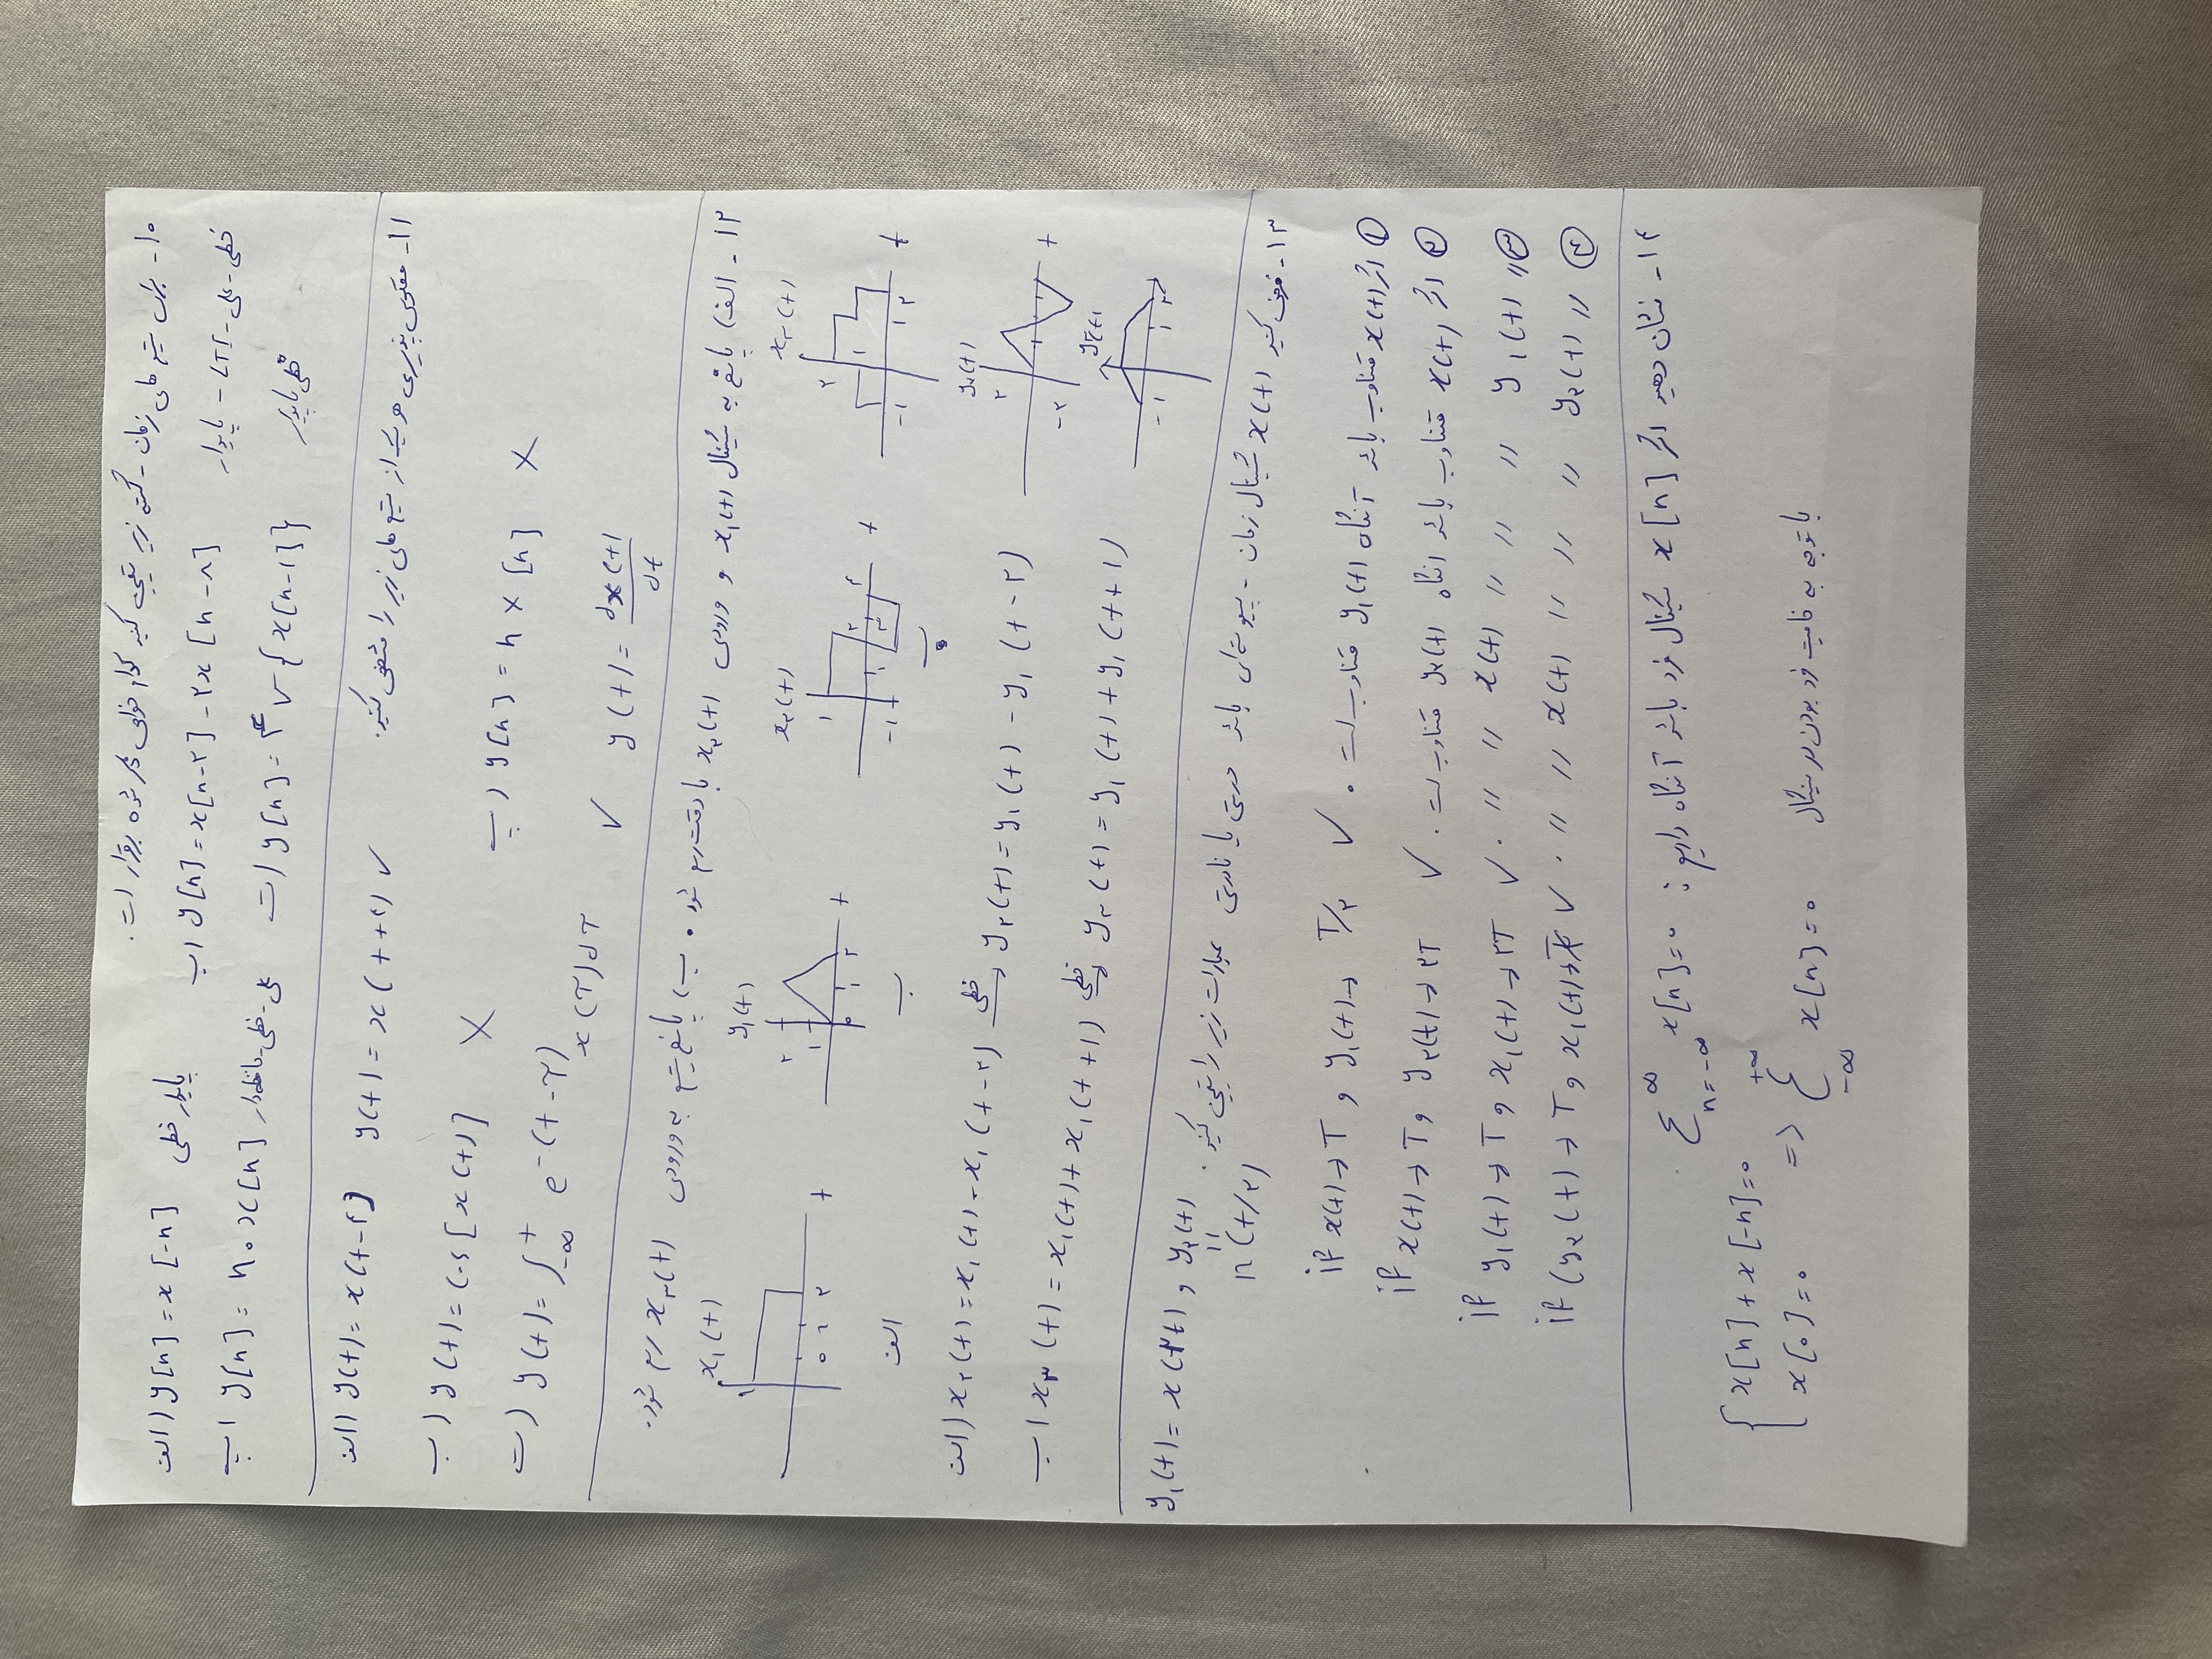 ۱۰- برای سیستم های زمان - گسسته زیر تعیین کنید کدام خواص ذکر شده برقرار است.
الف) y[n] = x[-n] پایدار خطی
ب) y[n] = x[n-۲] - ۲x[n-۸] خطی - علی - LTI - پایدار
پ) y[n] = n۰x[n] علی - خطی - حافظه‌دار
ت) y[n] = ۴v{x[n-۱]} خطی پایدار
۱۱- معکوس پذیری هر یک از سیستم های زیر را مشخص کنید.
الف) y(t) = x(t-۴) y(t) = x(t+۴) ✓
ب) y(t) = cos[x(t)] X
پ) y[n] = n x[n] X
ت) y(t) = ∫_{-∞}^{t} e^{-(t-τ)} x(τ)dτ ✓ y(t) = dx(t)/dt
۱۲- الف) پاسخ به سیگنال x۱(t) و ورودی x۲(t) با دقت رسم شود. ب) پاسخ سیستم به ورودی x۳(t) رسم شود.
x۱(t) y۱(t) x۲(t) x۳(t)
۱ ۰ ۱ ۲ t
۲ ۱ ۰ ۱ ۲ t
۱ -۱ ۱ ۲ ۳ ۴ t
۲ ۱ -۱ ۱ ۲ t
الف ب پ
الف) x۲(t) = x۱(t) - x۱(t-۲) خطی → y۲(t) = y۱(t) - y۱(t-۲)
y۲(t) ۲ -۲ t
ب) x۳(t) = x۱(t) + x۱(t+۱) خطی → y۳(t) = y۱(t) + y۱(t+۱)
y۳(t) -۱ ۱ ۲
۱۳- فرض کنید x(t) سیگنال زمان - پیوسته‌ای باشد درستی یا نادرستی عبارات زیر را تعیین کنید. y۱(t) = x(۲t) , y۲(t) = x(t/۲)
① اگر x(t) متناوب باشد آنگاه y۱(t) متناوب است. ✓ if x(t) → T و y۱(t) → T/۲
② اگر x(t) متناوب باشد انگاه y۲(t) متناوب است. ✓ if x(t) → T و y۲(t) → ۲T
③ // y۱(t) // // // x(t) // //. ✓ if y۱(t) → T و x۱(t) → ۲T
④ // y۲(t) // // // x(t) // //. ✓ if (y۲(t) → T و x۱(t) →
۱۴- نشان دهید اگر x[n] سیگنال فرد باشد آنگاه داریم: ∑_{n=-∞}^{∞} x[n] = ۰
{ x[n] + x[-n] = ۰
x[۰] = ۰ => ∑_{-∞}^{+∞} x[n] = ۰ با توجه به خاصیت فرد بودن سیگنال